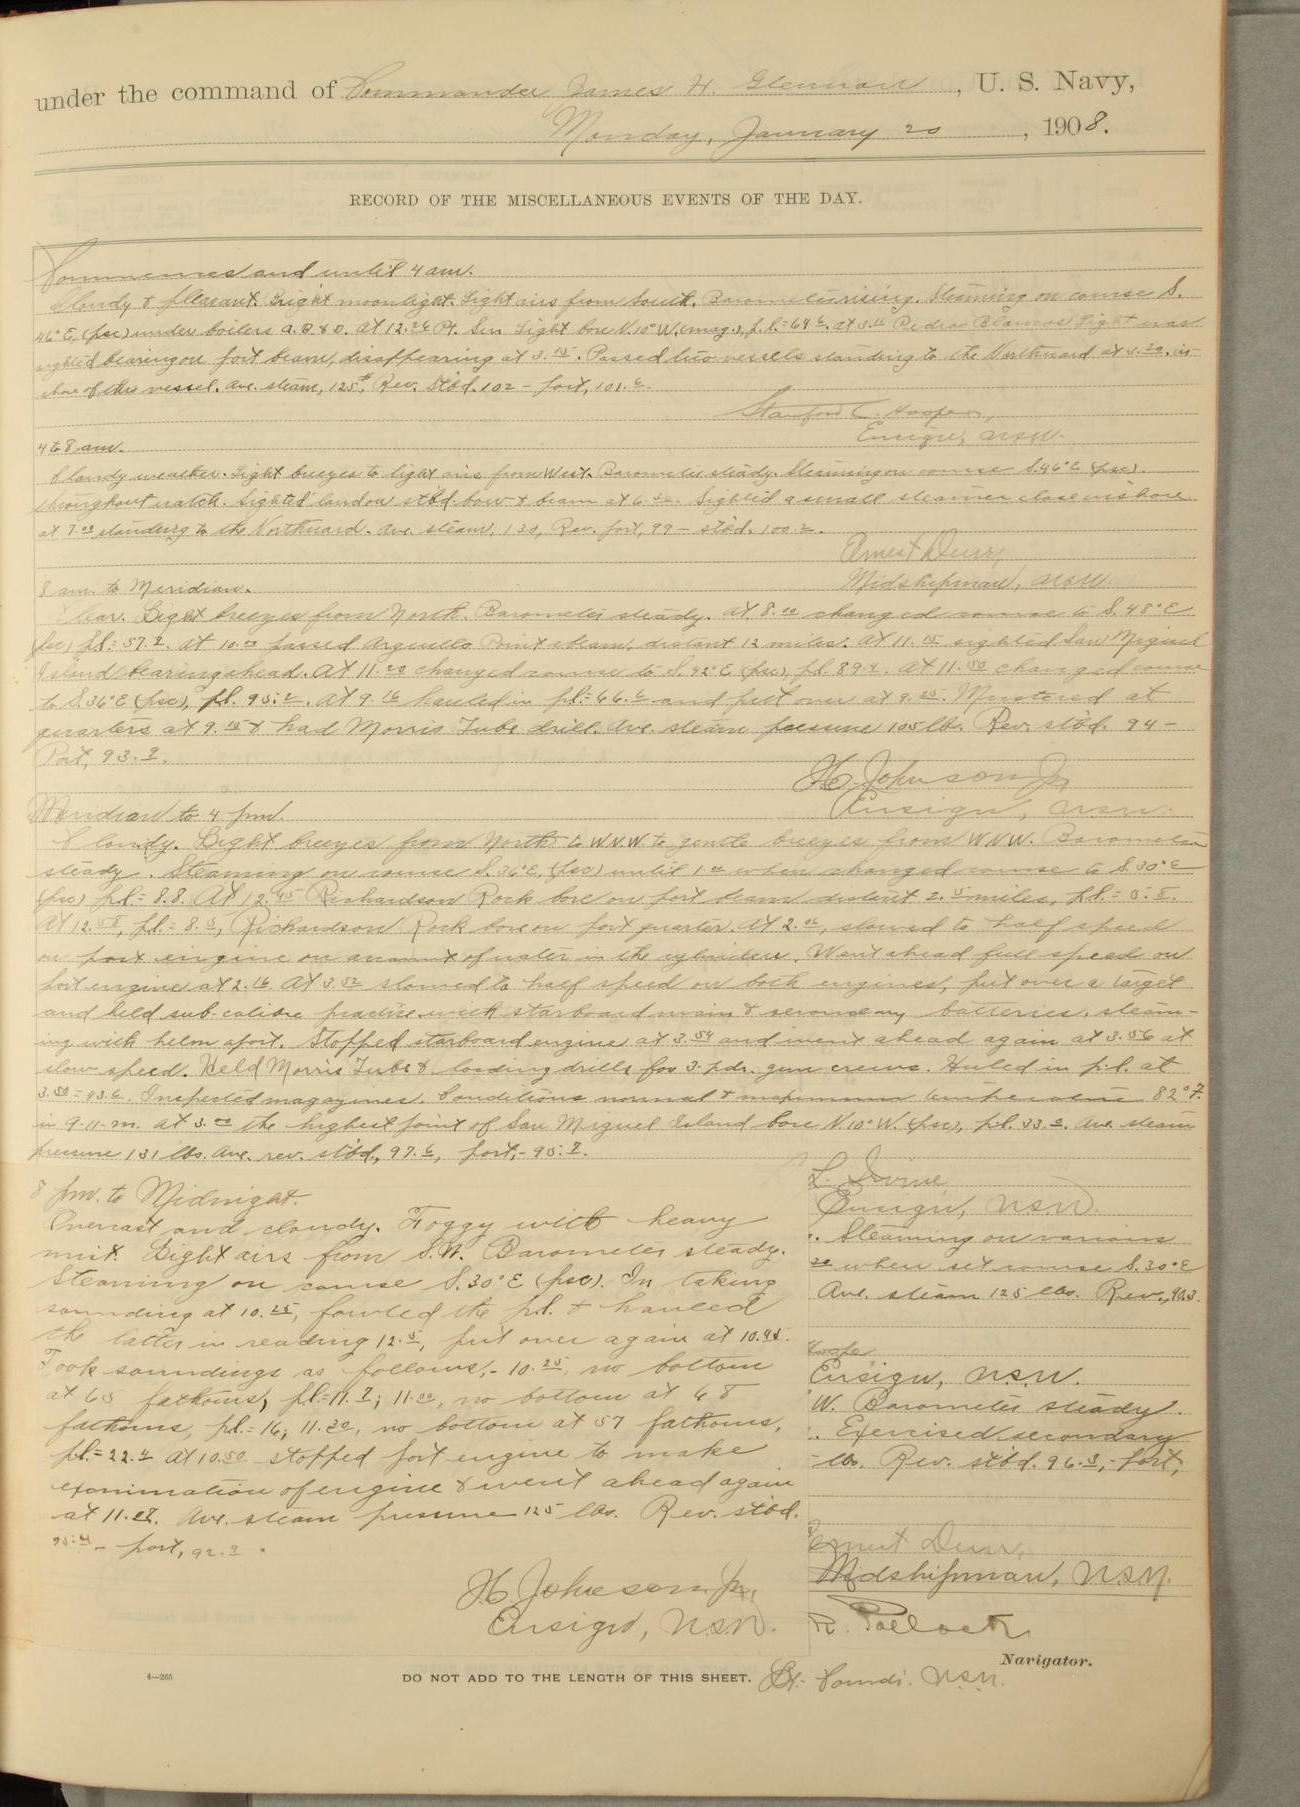 under the command of Commander James H. Glennan, U. S. Navy,
Monday, January 20, 1908.
RECORD OF THE MISCELLANEOUS EVENTS OF THE DAY.
Commences and until 4 am.
Cloudy & pleasant. Bright moonlight. Light airs from South. Barometer rising. Steaming on course S.
46° E, (psc) under boilers a. B & D. At 12.26 Pt. Sur Light bore N. 10° W. (mag.), p.l.=69.6. at 3.15 Pedras Blancas Light was
sighted bearing on port beam, disappearing at 3.15. Passed two vessels standing to the Northward at 3.20. in
shore of this vessel. Ave. steam, 125#, Rev. Stbd. 102 – port, 101.6.
Stanford C. Hooper,
Ensign, USN.
4 to 8 am.
Cloudy weather. Light breezes to light airs from West. Barometer steady. Steaming on course S. 46° E (psc)
throughout watch. Sighted land on stbd. bow & beam at 6.30. Sighted a small steamer close inshore
at 7.00 standing to the Northward. Ave. steam, 130, Rev. port, 99 – stbd. 100.2.
Ernest Durr,
Midshipman, USN.
8 am. to Meridian.
Clear. Light breezes from North. Barometer steady. At 8.00 changed course to S. 48° E
(psc) p.l.= 57.9. At 10.00 passed Arguello Point abeam, distant 12 miles. At 11.15 sighted San Miguel
Island bearing ahead. At 11.20 changed course to S. 42° E (psc), p.l. 89.4. At 11.50 changed course
to S. 36° E (psc), p.l. 95.2. At 9.16 hauled in p.l.= 66.6 and put over at 9.25. Mustered at
quarters at 9.15 & had Morris Tube drill. Ave. steam pressure 105 lbs. Rev. stbd. 94 –
Port, 93.9.
H. Johnson Jr.
Ensign, USN.
Meridian to 4 pm.
Cloudy. Light breezes from North to W.N.W. to gentle breezes from W.N.W. Barometer
steady. Steaming on course S. 36° E. (psc) until 1.00 when changed course to S. 30° E
(psc) p.l.= 8.8. At 12.45 Richardson Rock bore on port beam distant 2.5 miles, p.l.= 5.8.
At 12.58, p.l.= 8.5, Richardson Rock bore on port quarter. At 2.06, slowed to half speed
on port engine on amount of water in the cylinders. Went ahead full speed on
port engine at 2.16. At 3.52 slowed to half speed on both engines, put over a target
and held sub-calibre practice with starboard main & secondary batteries, steam-
ing with helm aport. Stopped starboard engine at 3.54 and went ahead again at 3.56 at
slow speed. Held Morris Tube & loading drills for 3-pdr. gun crews. Hauled in p.l. at
3.50 = 43.6. Inspected magazines. Conditions normal & maximum temperature 82° F.
in 9-11-m. At 3.00 the highest point of San Miguel Island bore N. 10° W. (psc), p.l. 33.5. Ave. steam
pressure 131 lbs. Ave. rev. stbd, 97.6, port,- 95.7.
L. Irvine
Ensign, U.S.N.
Steaming on various
when set course S. 30° E
Ave. steam 125 lbs. Rev., 90.3.
Hooper
Ensign, U.S.N.
W. Barometer steady.
Exercised secondary
lbs. Rev. stbd. 96.3,- port,
Ernest Durr,
Midshipman, U.S.N.
8 pm. to Midnight.
Overcast and cloudy. Foggy with heavy
mist. Light airs from S.W. Barometer steady.
Steaming on course S. 30° E (psc). In taking
sounding at 10.25, fouled the p.l. & hauled
the latter in reading 12.5, put over again at 10.45.
Took soundings as follows,- 10.25, no bottom
at 65 fathoms, p.l.=11.7; 11.00, no bottom at 68
fathoms, p.l.= 16; 11.30, no bottom at 57 fathoms,
p.l.= 22.4. At 10.50 stopped port engine to make
examination of engine & went ahead again
at 11.07. Ave. steam pressure 125 lbs. Rev. stbd.
95.4 – port, 92.9.
H. Johnson Jr,
Ensign, U.S.N.
R. Pollock
Navigator.
4—265
DO NOT ADD TO THE LENGTH OF THIS SHEET.
Lt. Comdr. U.S.N.